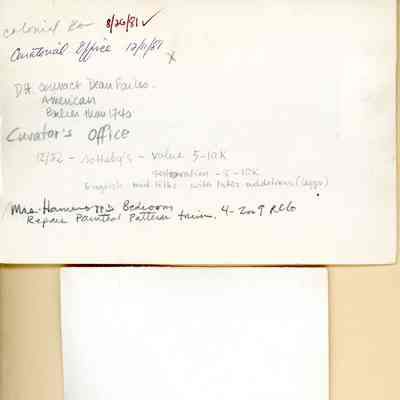 colonial Rm 8/26/81 ✓
Curatorial Office 12/11/81 x
D.F. contact Dean Failes.
American
Earlier than 1740
Curator's Office
12/82 - Sotheby's - value 5-10K
restoration - 5-10K
English mid 18thc with later additions (legs)
Mrs. Hammond's Bedroom
Repair Painted Pattern trim. 4-2009 RCG